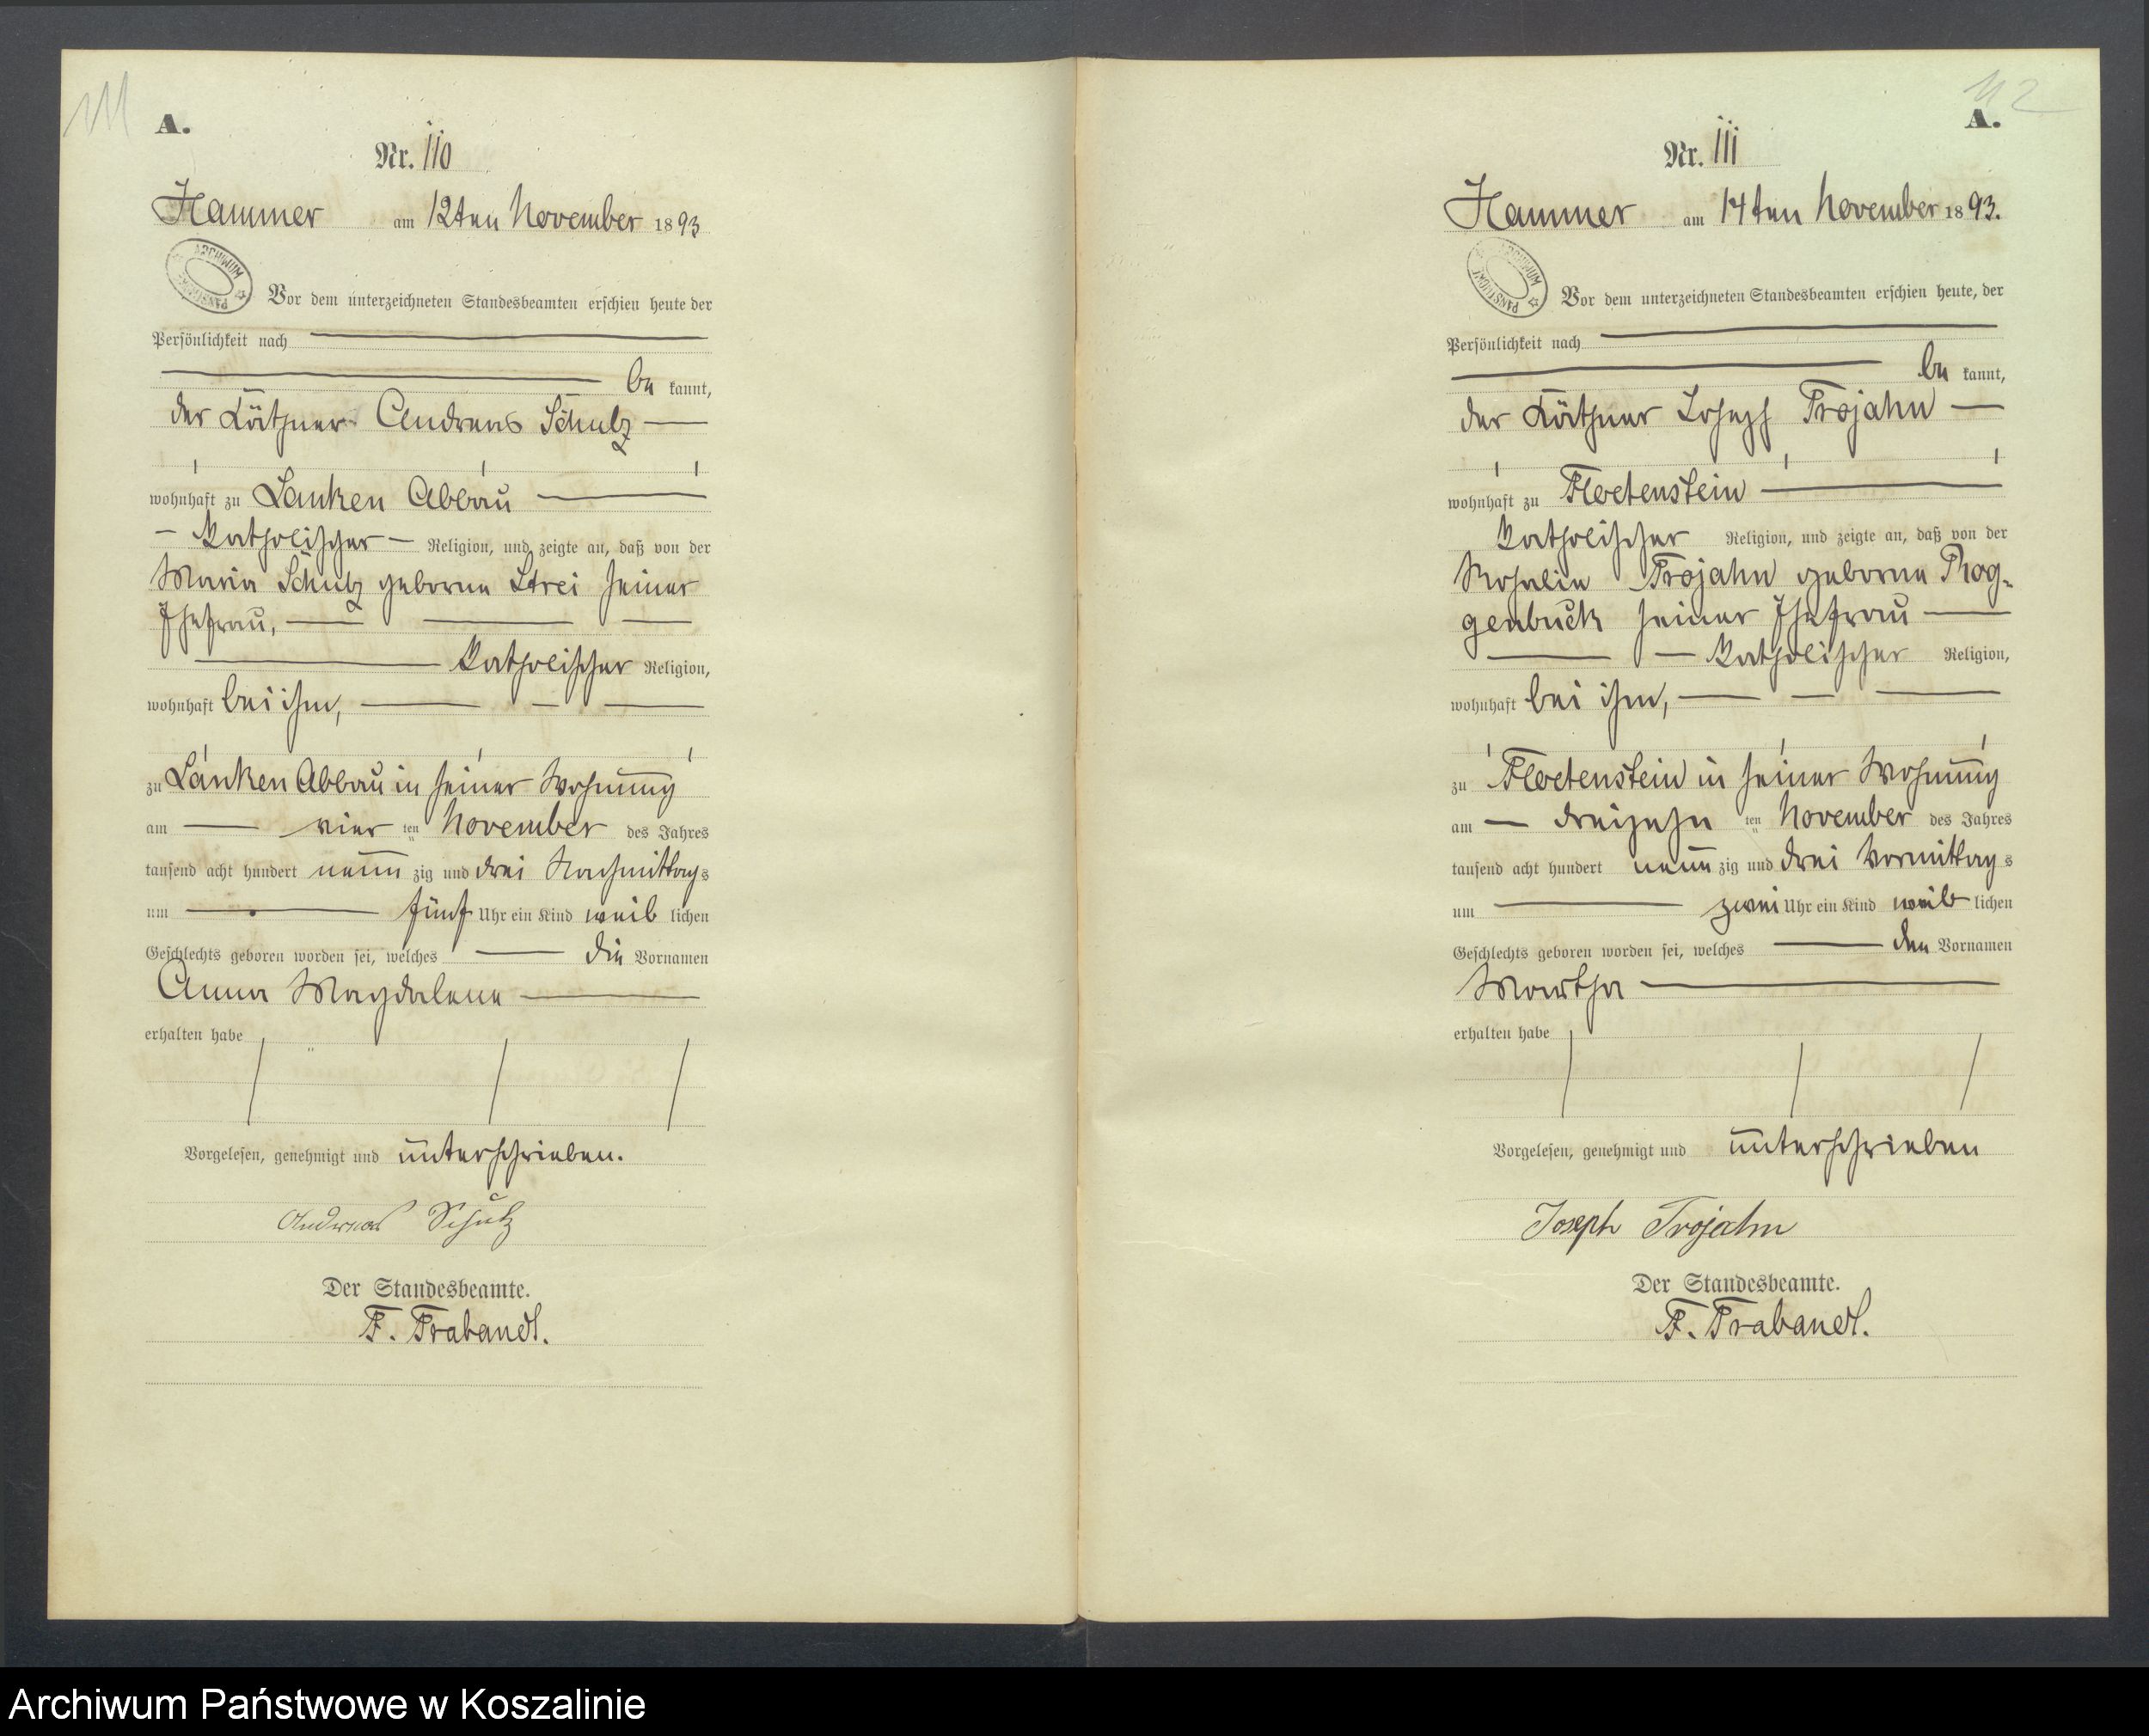 111
A.
Nr. 110
Hammer am 12ten November 1893
ARCHIWUM PAŃSTWOWE
Vor dem unterzeichneten Standesbeamten erschien heute der
Persönlichkeit nach
be kannt,
der Käthner Andreas Schulz
wohnhaft zu Lanken Abbau
katholischer Religion, und zeigte an, daß von der
Maria Schulz geborne Strei seiner
Ehefrau,
katholischer Religion,
wohnhaft bei ihm,
zu Lanken Abbau in seiner Wohnung
am vier ten November des Jahres
tausend acht hundert neun zig und drei Nachmittags
um fünf Uhr ein Kind weib lichen
Geschlechts geboren worden sei, welches die Vornamen
Anna Magdalene
erhalten habe
Vorgelesen, genehmigt und unterschrieben.
Andreas Schulz
Der Standesbeamte.
F. Trabandt.
112
A.
Nr. 111
Hammer am 14ten November 1893.
ARCHIWUM PAŃSTWOWE
Vor dem unterzeichneten Standesbeamten erschien heute, der
Persönlichkeit nach
be kannt,
der Käthner Joseph Trojahn
wohnhaft zu Floetenstein
katholischer Religion, und zeigte an, daß von der
Rosalie Trojahn geborne Rog-
genbuck seiner Ehefrau
katholischer Religion,
wohnhaft bei ihm,
zu Floetenstein in seiner Wohnung
am dreizehn ten November des Jahres
tausend acht hundert neun zig und drei Vormittags
um zwei Uhr ein Kind weib lichen
Geschlechts geboren worden sei, welches den Vornamen
Martha
erhalten habe
Vorgelesen, genehmigt und unterschrieben
Joseph Trojahn
Der Standesbeamte.
F. Trabandt.
Archiwum Państwowe w Koszalinie